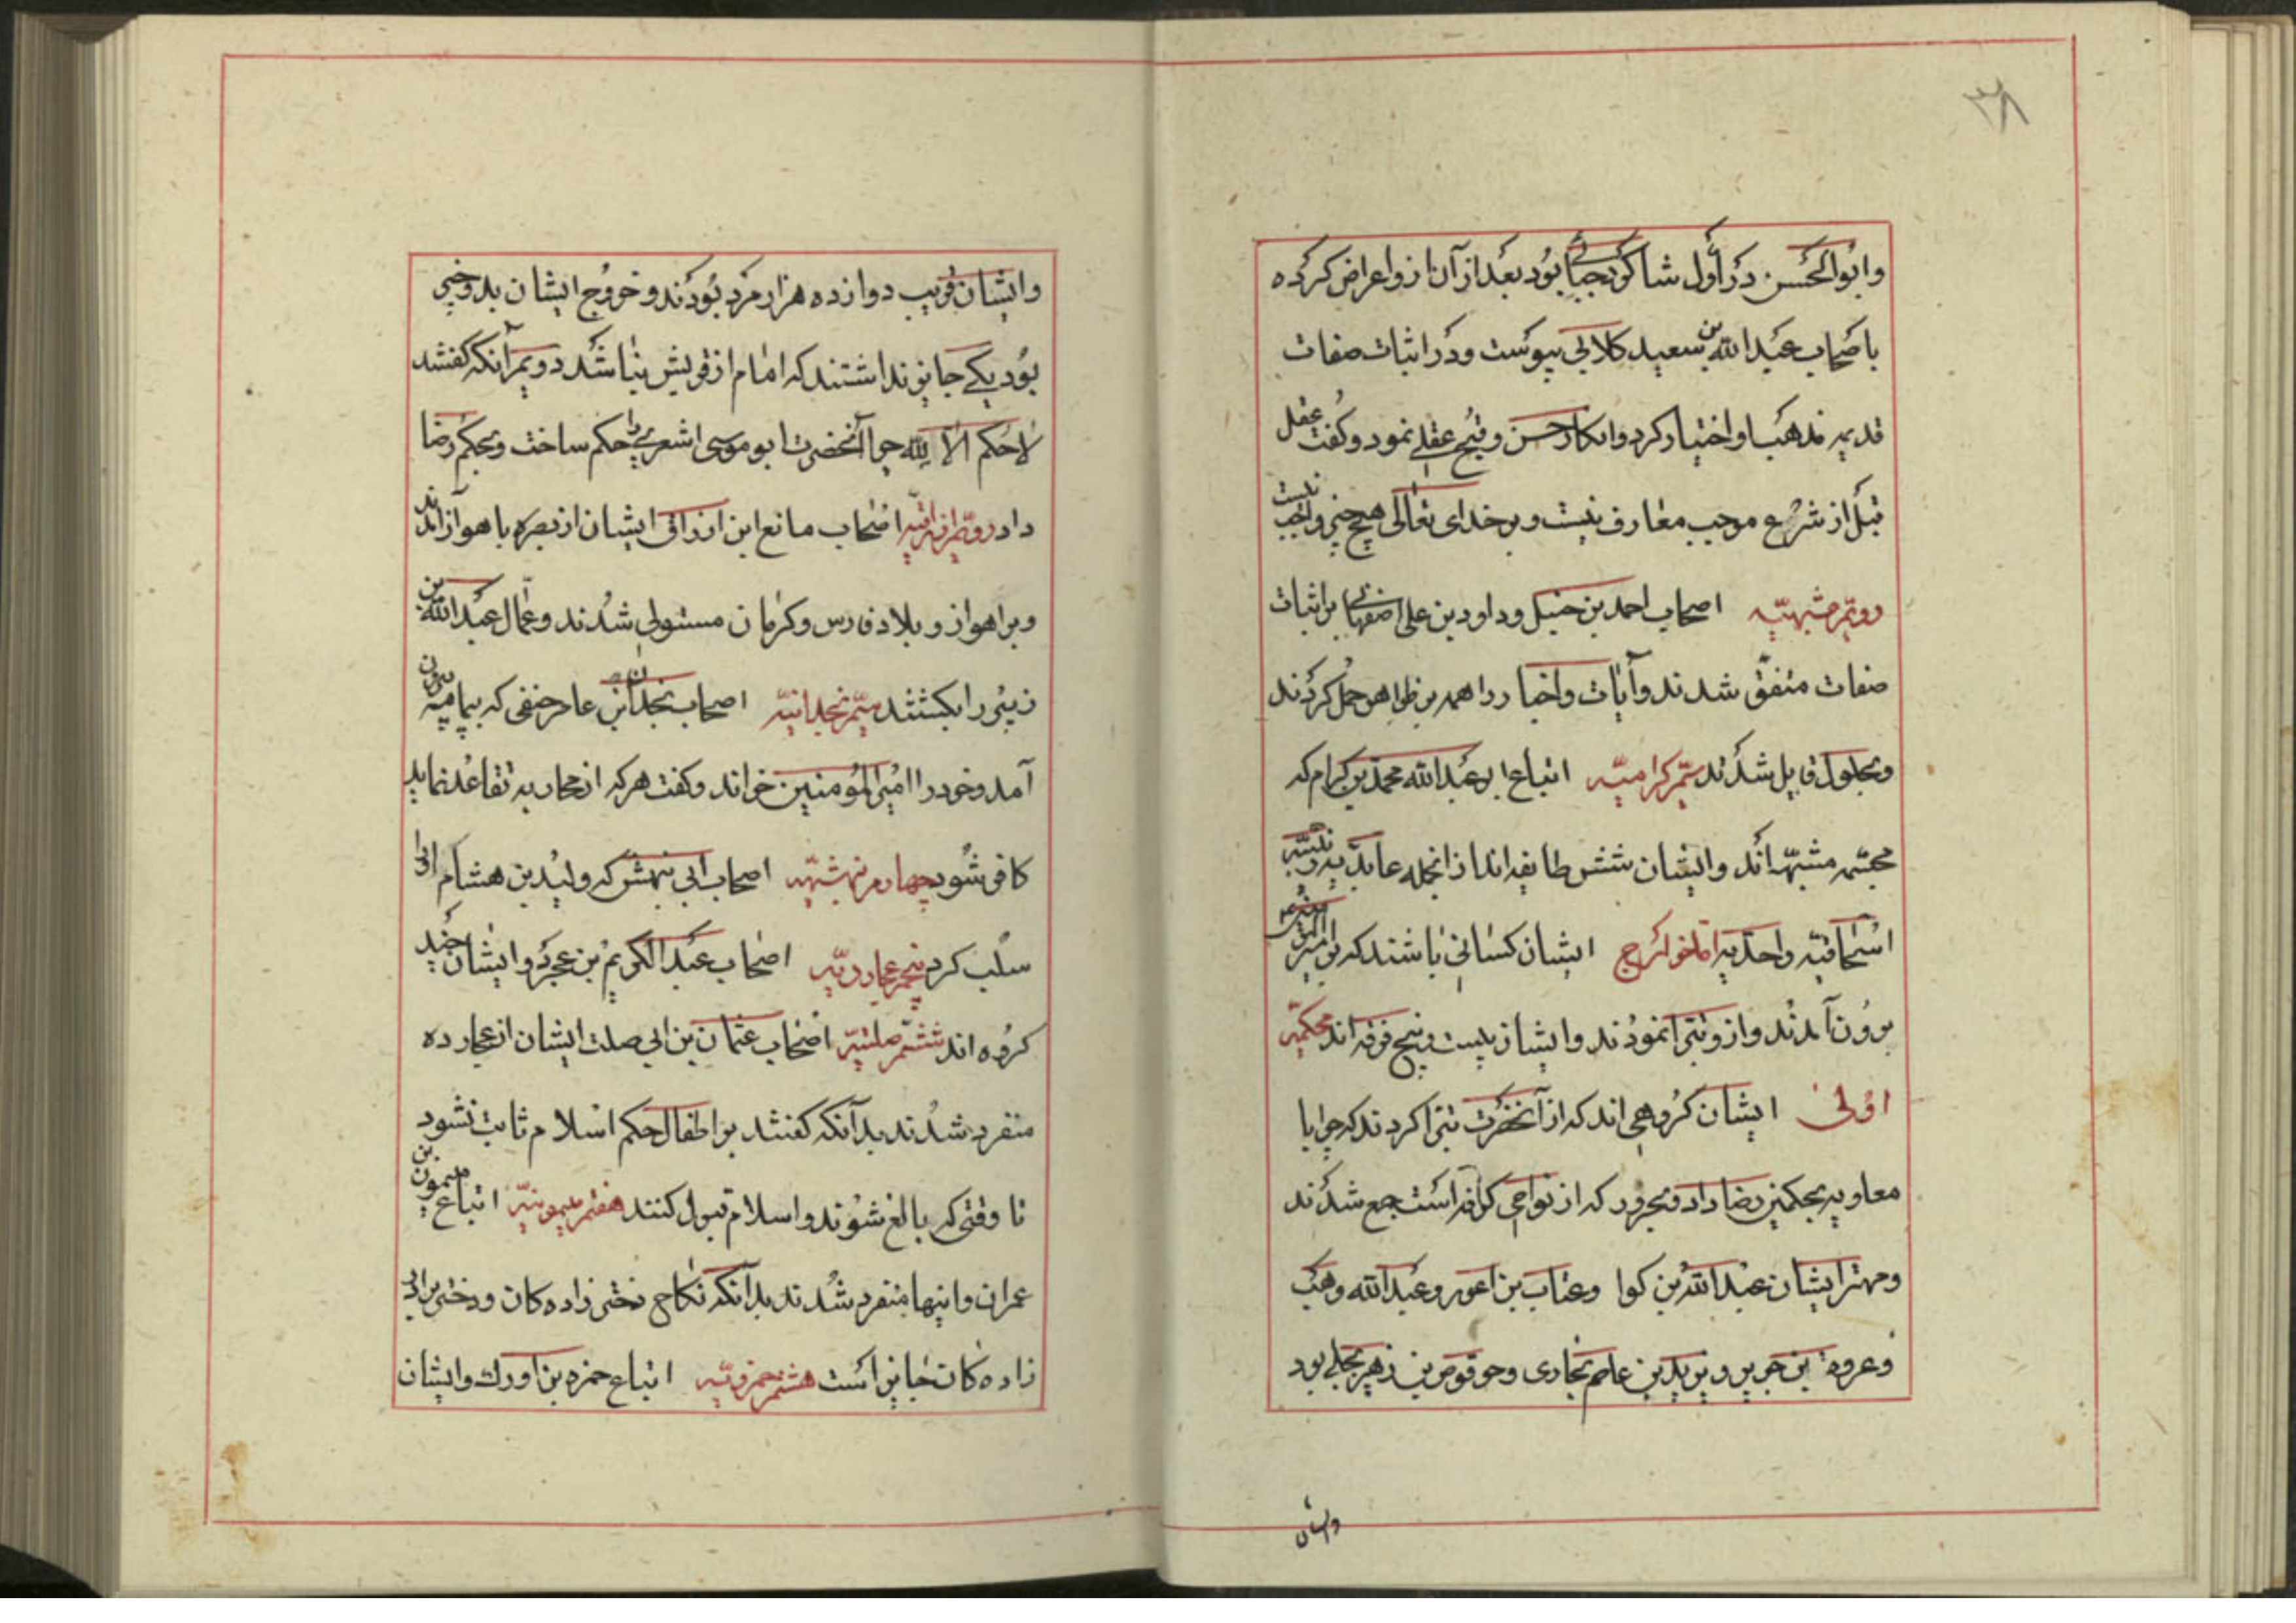 ۳۸
وابوالحسن در اول شاکرد جبائی بود بعد از آن ازو اعراض کرده
باصحاب عبدالله بن سعید کلابی پیوست ودر اثبات صفات
قدیمه مذهب او اختیار کرد وانکار حسن وقبح عقلی نمود وکفت عقل
قبل از شرع موجب معارف نیست وبر خدای تعالی هیچ چیز واجب نیست
دویم مشبهیّه اصحاب احمد بن حنبل وداود بن علی اصفهانی بر اثبات
صفات متفق شدند وآیات واخبار را همه بر ظواهر حمل کردند
وبحلول قایل شدند سیّم کرامیّه اتباع ابو عبدالله محمد بن کرام که
مجسّمه مشبّهه اند وایشان شش طایفه اند از انجمله عابدیه
اسحاقیّه واحدیه اما خوارج ایشان کسانی باشند که بر امیر
برون آمدند وازو تبرا نمودند وایشان بیست وپنج فرقه اند محکمیّه
اولی ایشان کروهی اند که از آنحضرت تبرا کردند که چرا با
معاویه بحکمین رضا داد وبحرور که از نواحی کوفه است جمع شدند
ومهتر ایشان عبدالله بن کوا وعتاب بن اعور وعبدالله وهب
وعروة بن جریر ویزید بن عاصم بخاری وحرقوص بن زهیر بجلی بود
وایشان
وایشان قریب دوازده هزار مرد بودند وخروج ایشان بدو چیز
بود یکی جایز نداشتند که امام از قریش نباشد دویم آنکه کفتند
لاحکم الا لله چرا آنحضرت ابو موسی اشعری را حکم ساخت وبحکم رضا
داد دویّم ازارقیّه اصحاب مانع ابن ازراق ایشان از بصره باهواز آمدند
وبر اهواز وبلاد فارس وکرمان مستولی شدند وعمال عبدالله بن
زبیر را بکشتند سیّم نجدانیّه اصحاب نجدان بن عامر حنفی که بیمامه
آمد وخود را امیر المؤمنین خواند وکفت هر که از محاربه تقاعد نماید
کافر شود چهارم بهشیّه اصحاب ابی بهنش که ولید بن هشام اورا
سلب کرد پنجم عجاردیّه اصحاب عبدالکریم بن عجرد وایشان چند
کروه اند ششم صلتیّه اصحاب عثمان بن ابی صلت ایشان از عجارده
منفرد شدند بدآنکه کفتند بر اطفال حکم اسلام ثابت نشود
تا وقتی که بالغ شوند واسلام قبول کنند هفتم میمونیّه اتباع میمون بن
عمران واینها منفرد شدند بدانکه نکاح دختر زاده کان ودختر برادر
زاده کان جایز است هشتم حمزویّه اتباع حمزه بن اورك وایشان